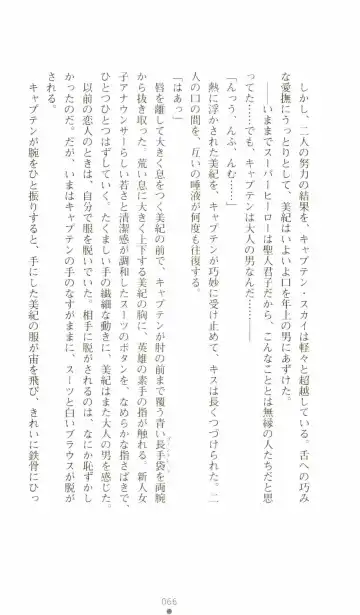 しかし、二人の努力の結果を、キャプテン・スカイは軽々と超越している。舌への巧み
な愛撫にうっとりとして、美紀はいよいよ口を年上の男にあずけた。
――いままでスーパーヒーローは聖人君子だから、こんなこととは無縁の人たちだと思
ってた……でも、キャプテンは大人の男なんだ…………
「んっう、んふ、んむ……」
熱に浮かされた美紀を、キャプテンが巧妙に受け止めて、キスは長くつづけられた。二
人の口の間を、互いの唾液が何度も往復する。
「はあっ」
唇を離して大きく息をつく美紀の前で、キャプテンが肘の前まで覆う青い長手袋を両腕
から抜き取った。荒い息に大きく上下する美紀の胸に、英雄の素手の指が触れる。新人女
子アナウンサーらしい若さと清潔感が調和したスーツのボタンを、なめらかな指さばきで、
ひとつひとつはずしていく。たくましい手の繊細な動きに、美紀はまた大人の男を感じた。
以前の恋人のときは、自分で服を脱いでいた。相手に脱がされるのは、なにか恥ずかし
かったのだ。だが、いまはキャプテンの手のなすがままに、スーツと白いブラウスが脱が
される。
キャプテンが腕をひと振りすると、手にした美紀の服が宙を飛び、きれいに鉄骨にひっ
066